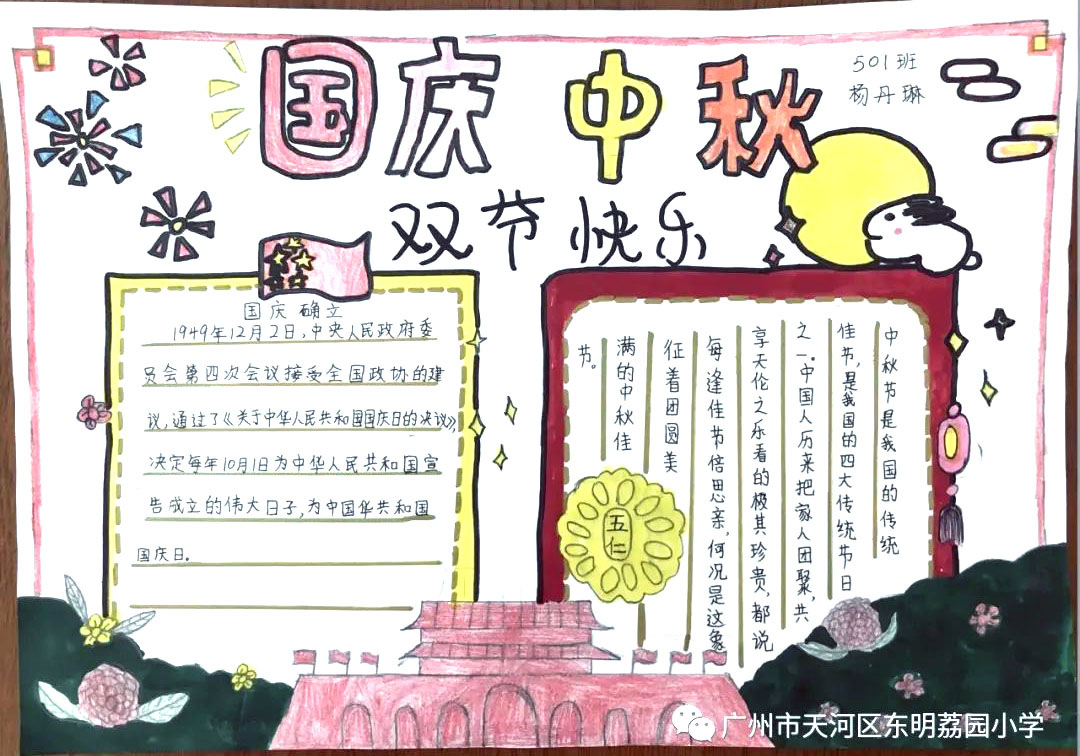 国庆 中秋
501班
杨丹琳
双节快乐
国庆确立
1949年12月2日,中央人民政府委
员会第四次会议接受全国政协的建
议,通过了《关于中华人民共和国国庆日的决议》
决定每年10月1日为中华人民共和国宣
告成立的伟大日子,为中国华共和国
国庆日。
中秋节是我国的传统
佳节,是我国的四大传统节日
之一。中国人历来把家人团聚,共
享天伦之乐看的极其珍贵,都说
每逢佳节倍思亲,何况是这象
征着团圆美
满的中秋佳
节。
五仁
广州市天河区东明荔园小学